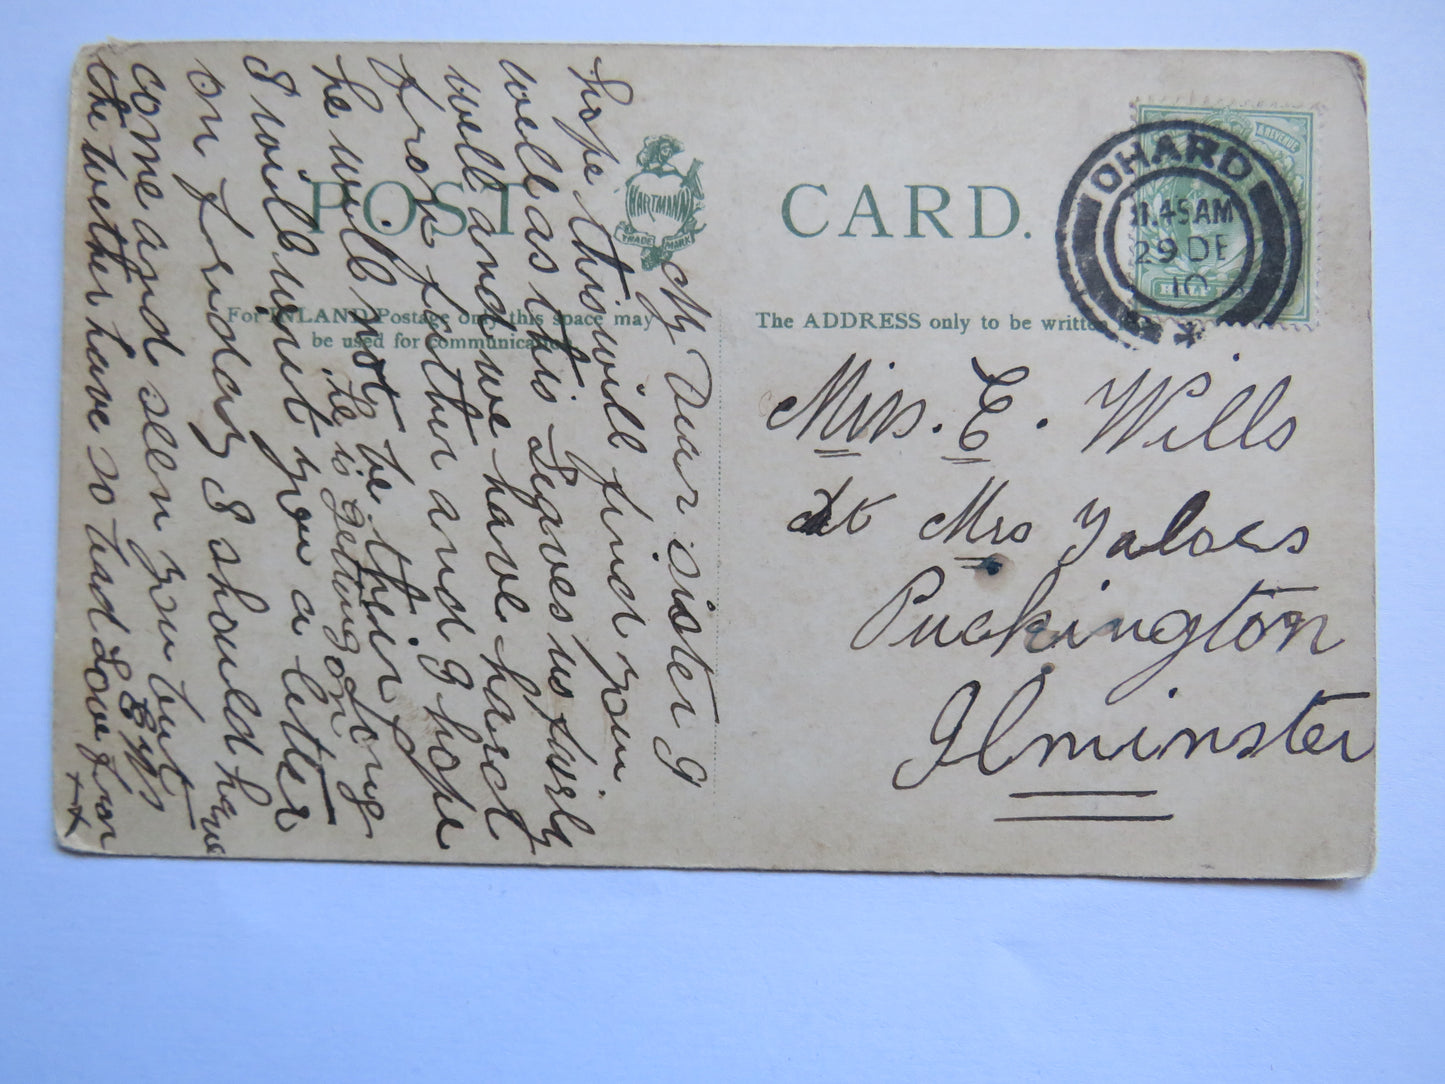 POST CARD.
HARTMANN
TRADE MARK
For INLAND Postage only this space may
be used for communication
The ADDRESS only to be written
& REVENUE
HALF
CHARD
11.45AM
29 DE
10
Miss. E. Wills
At Mrs
Puckington
Ilminster
My Dear sister I
hope this will find you
well as this Leaves us fairly
well and we have heard
from father and I hope
he will not be their long
he is getting on
I will writ you a letter
on friday I should have
come and seen you but
the wether have so bad Love from
X